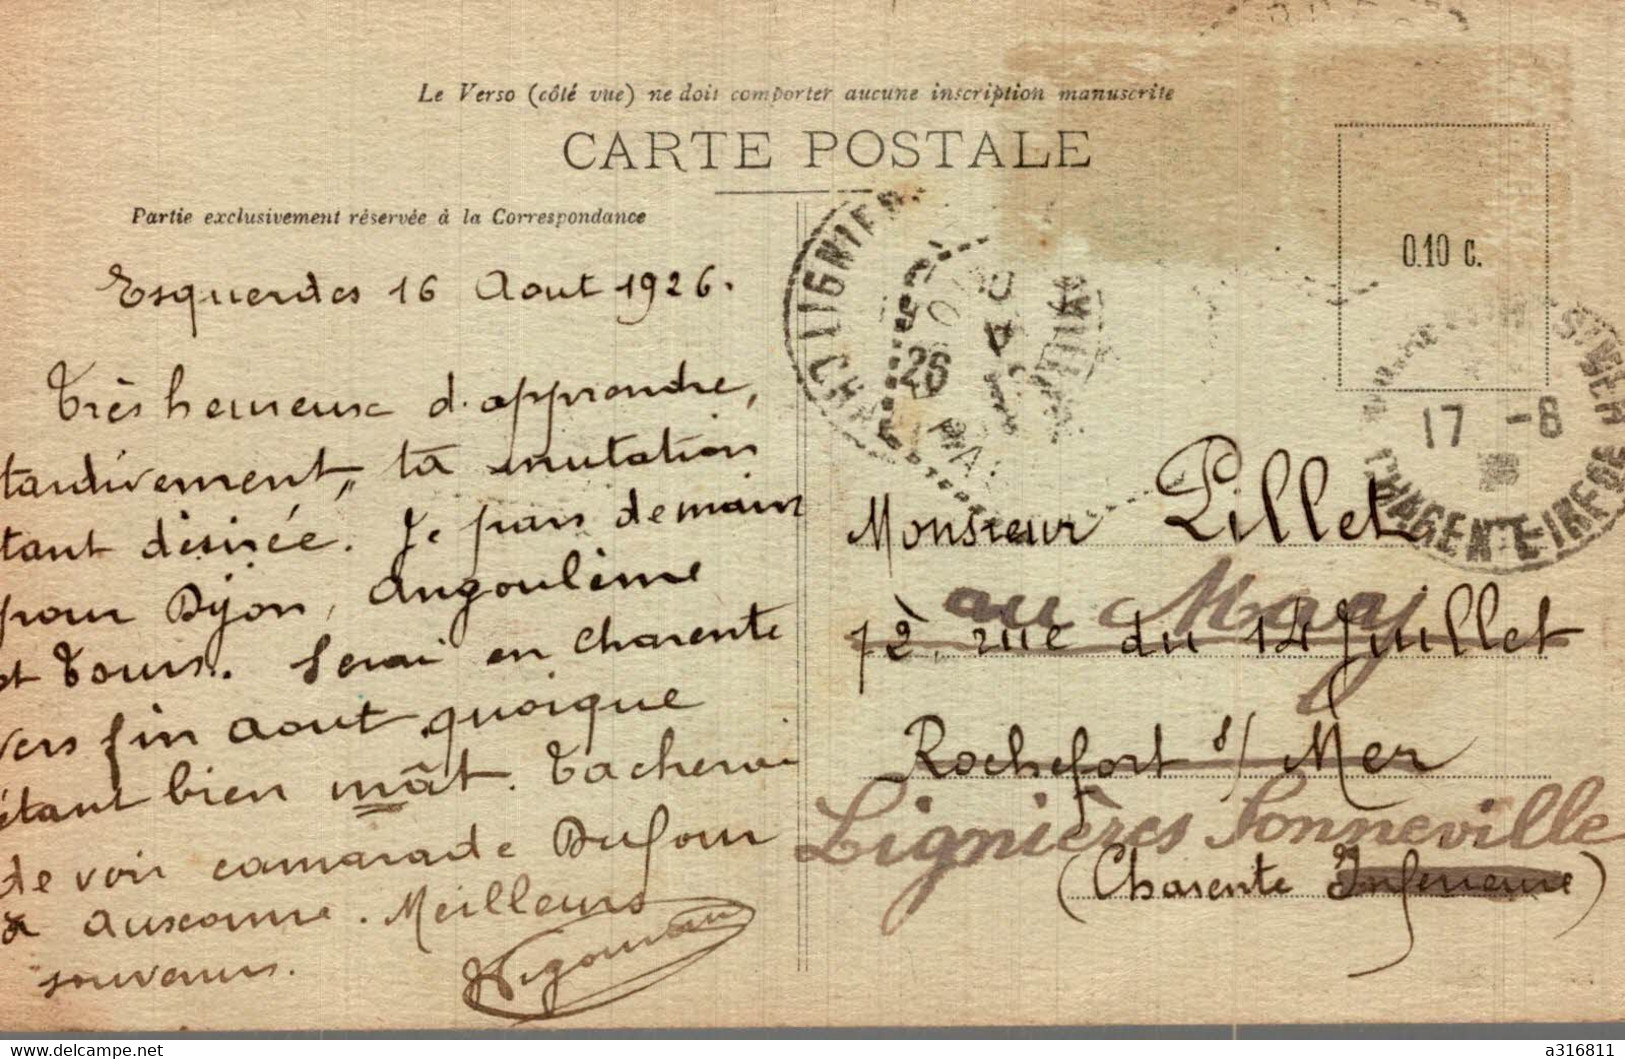 Le Verso (côté vue) ne doit comporter aucune inscription manuscrite
CARTE POSTALE
Partie exclusivement réservée à la Correspondance
Esquerdes 16 Aout 1926.
Très heureuse d'apprendre,
tardivement, ta mutation
tant désirée. Je pars demain
pour Dijon, Angoulême
et Tours. Serai en Charente
vers fin aout quoique
étant bien mât. Tacherai
de voir camarade Dufour
à Auxonne. Meilleurs
souvenirs.
0.10 c.
26
17 -8
Monsieur Pillet
au May
72, rue du 14 Juillet
Rochefort s/ Mer
Lignières Sonneville
(Charente Inferieure)
delcampe.net
a316811